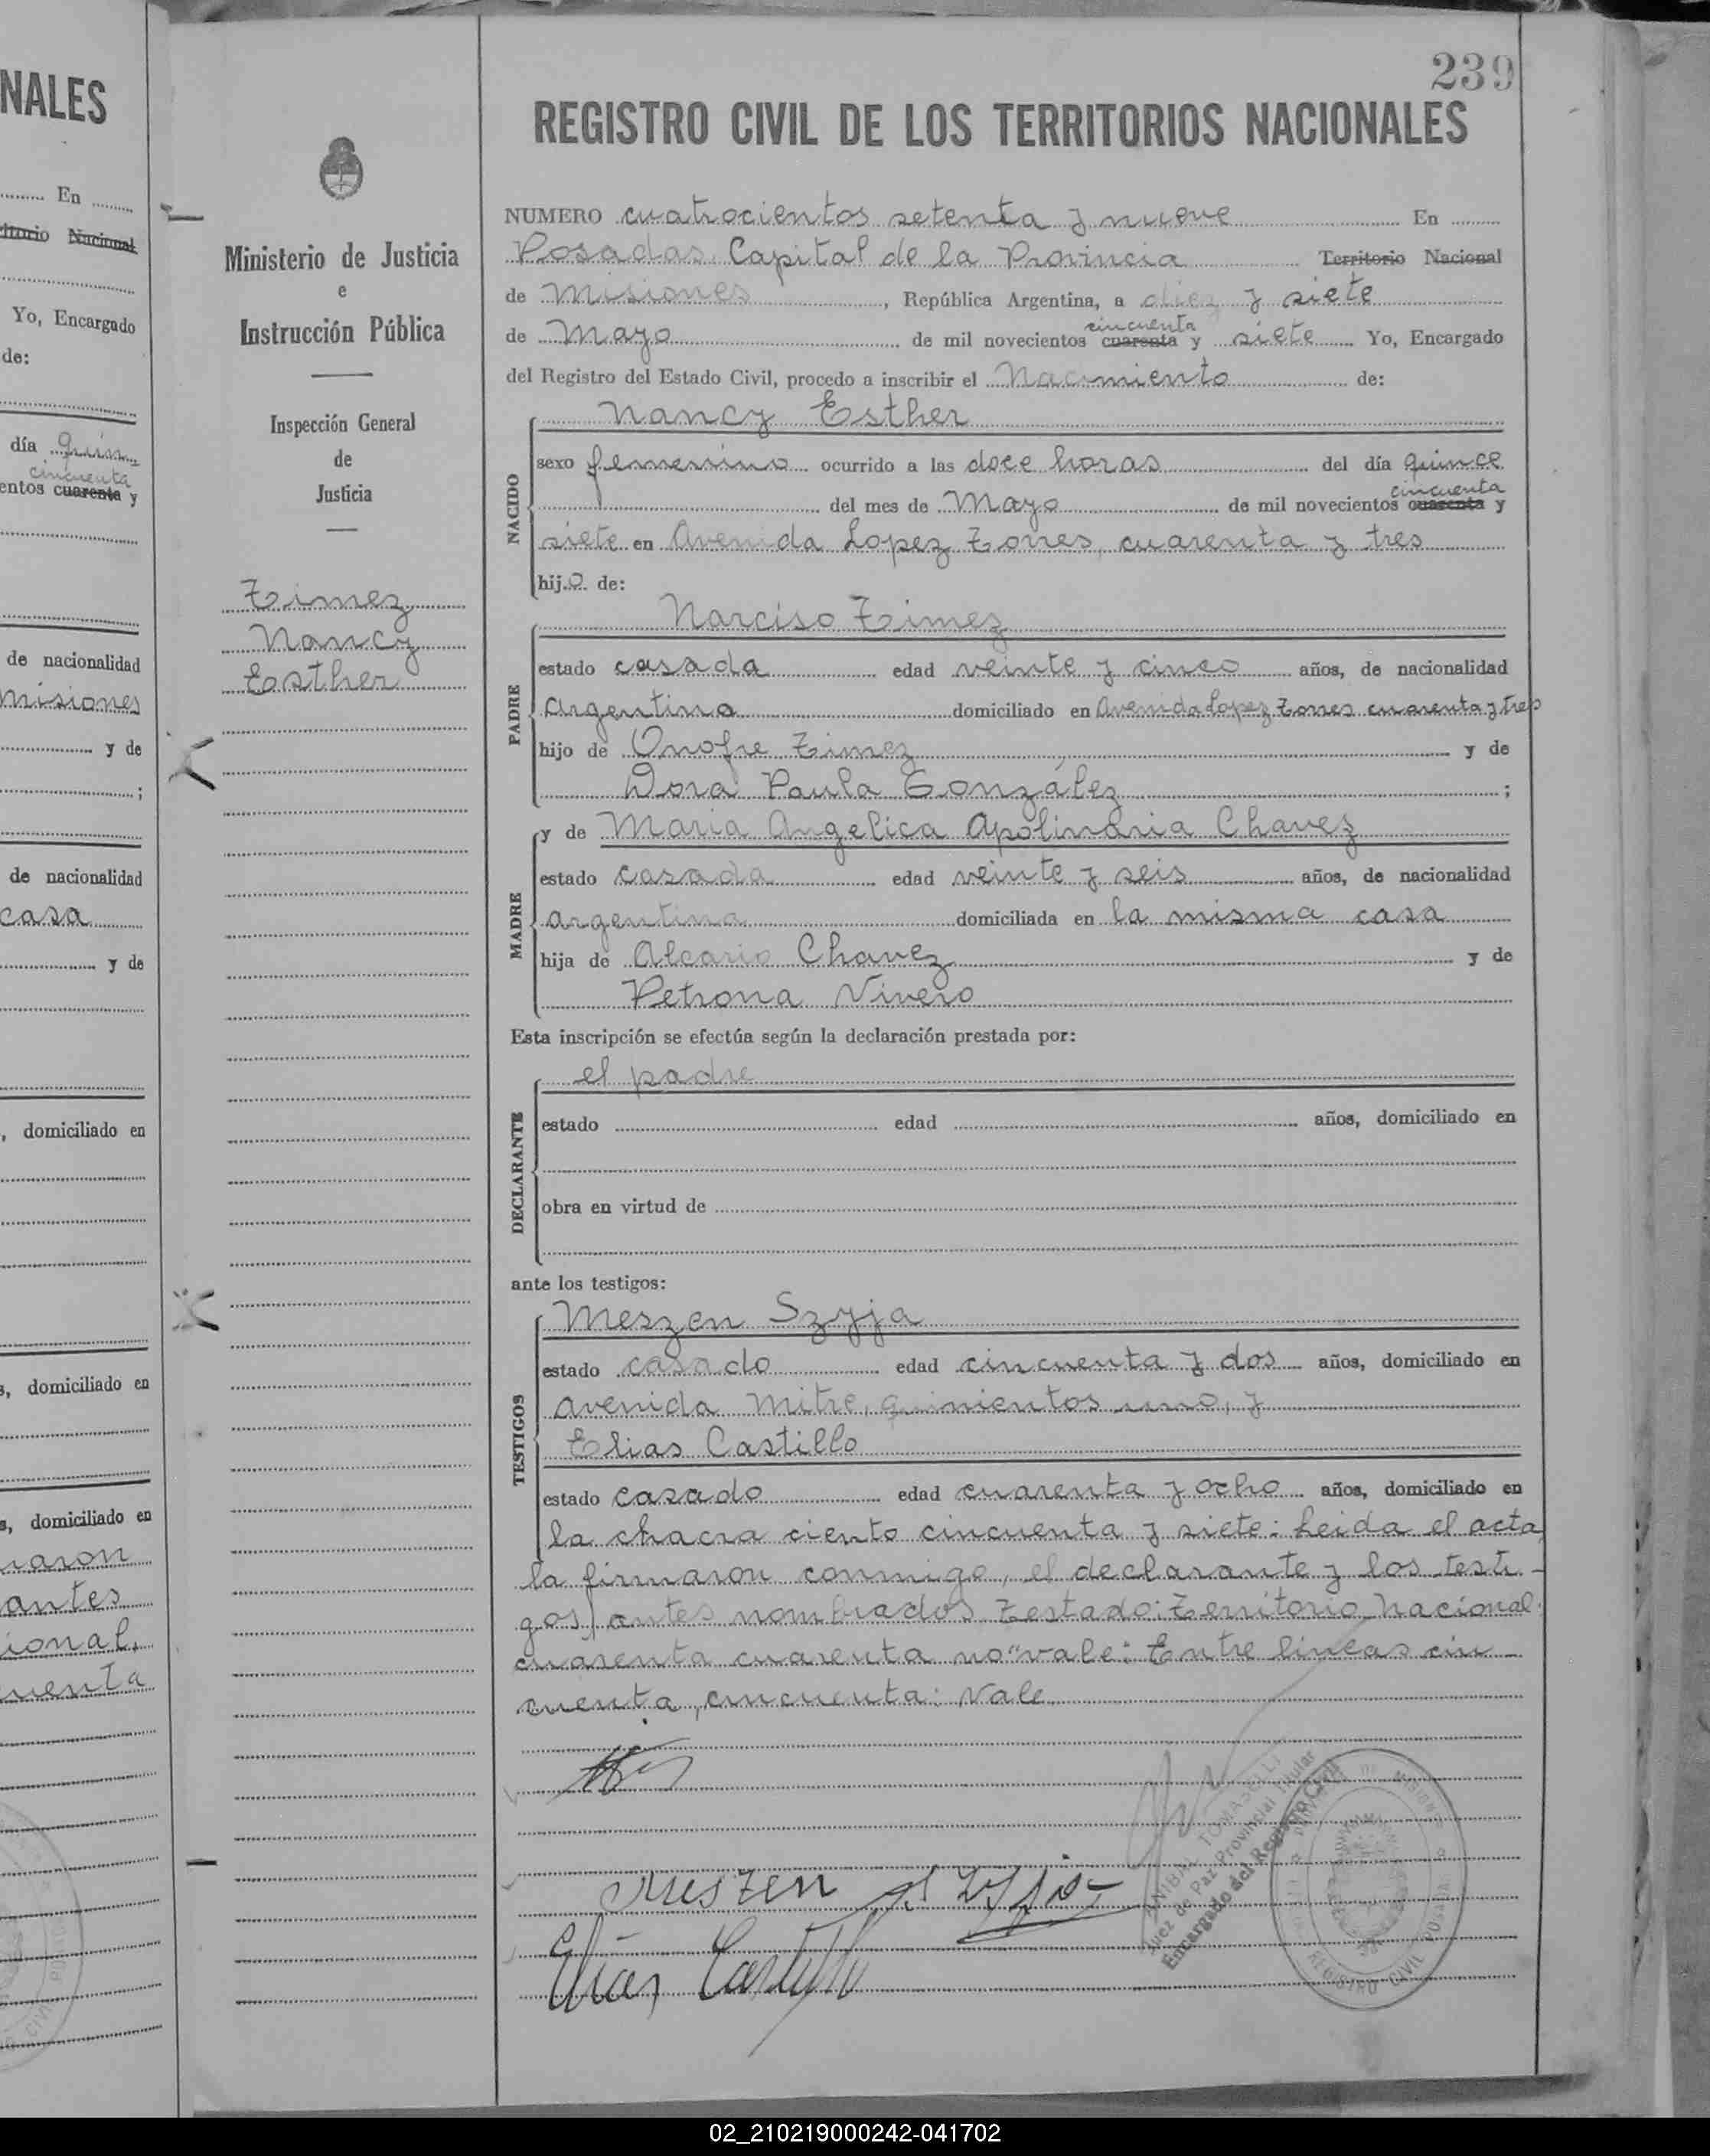 239
REGISTRO CIVIL DE LOS TERRITORIOS NACIONALES
NUMERO cuatrocientos setenta y nueve En
Posadas, Capital de la Provincia Territorio Nacional
de Misiones, República Argentina, a diez y siete
cincuenta
de Mayo de mil novecientos cuarenta y siete Yo, Encargado
del Registro del Estado Civil, procedo a inscribir el Nacimiento de:
NACIDO
Nancy Esther
sexo femenino ocurrido a las doce horas del día quince
cincuenta
del mes de Mayo de mil novecientos cuarenta y
siete en Avenida Lopez Torres, cuarenta y tres
hij.o de:
PADRE
Narciso Timez
estado casada edad veinte y cinco años, de nacionalidad
argentina domiciliado en Avenida Lopez Torres cuarenta y tres
hijo de Onofre Timez y de
Dora Paula González ;
MADRE
y de Maria Angelica Apolinaria Chavez
estado casada edad veinte y seis años, de nacionalidad
argentina domiciliada en la misma casa
hija de Alcario Chavez y de
Petrona Vivero
Esta inscripción se efectúa según la declaración prestada por:
DECLARANTE
el padre
estado edad años, domiciliado en
obra en virtud de
ante los testigos:
TESTIGOS
Meszen Szyja
estado casado edad cincuenta y dos años, domiciliado en
avenida Mitre, quinientos uno, y
Elias Castillo
estado casado edad cuarenta y ocho años, domiciliado en
la chacra ciento cincuenta y siete: Leida el acta
la firmaron conmigo, el declarante y los testi-
gos, antes nombrados Testado: Territorio Nacional
cuarenta cuarenta no "vale: Entre lineas cin-
cuenta, cincuenta: Vale
Meszen Szyja
Elias Castillo
ANIBAL TOMASELLI
Juez de Paz Provincial Titular
Encargado del Registro Civil
REGISTRO CIVIL POSADAS
MISIONES
Ministerio de Justicia
e
Instrucción Pública
Inspección General
de
Justicia
Timez
Nancy
Esther
NALES
En
Territorio Nacional
Yo, Encargado
de:
día quin
cincuenta
entos cuarenta y
de nacionalidad
Misiones
y de
;
de nacionalidad
casa
y de
, domiciliado en
s, domiciliado en
s, domiciliado en
maron
antes
ional,
cuenta
02_210219000242-041702